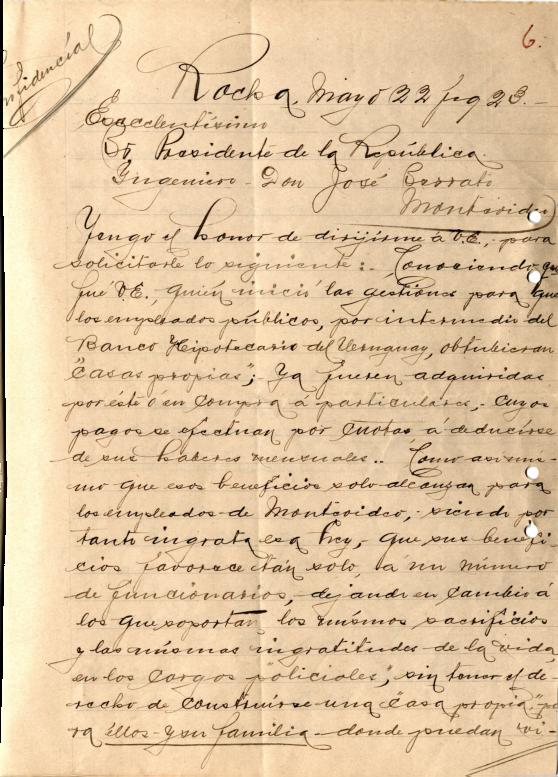 6.
Confidencial
Rocha, Mayo 22 de 1923.-
Exccelentísimo
Sr. Presidente de la República.
Ingeniero - Don José Serrato
Montevideo
Tengo el honor de dirijirme á V.E., para
solicitarle lo siguiente:- Conociendo que
fué V.E., quién inició las gestiones para que
los empleados públicos, por intermedio del
Banco Hipotecario del Uruguay, obtubieran
"Casas propias"; Ya fueren adquiridas
por éste ó en compra á particulares,- cuyos
pagos se efectuan por cuotas á deducírse
de sus haberes mensuales.. Como asimis-
mo que esos beneficios solo alcanzan para
los empleados de Montevideo,- siendo por
tanto ingrata esa Ley, que sus benefi-
cios favorecerían solo á un número
de funcionarios, dejando en cambio á
los que soportan los mismos sacrificios
y las mísmas ingratitudes de la vida
en los cargos "policiales", sin tener el de-
recho de construírse una "Casa propia" pa
ra éllos y su familia - donde puedan vi-